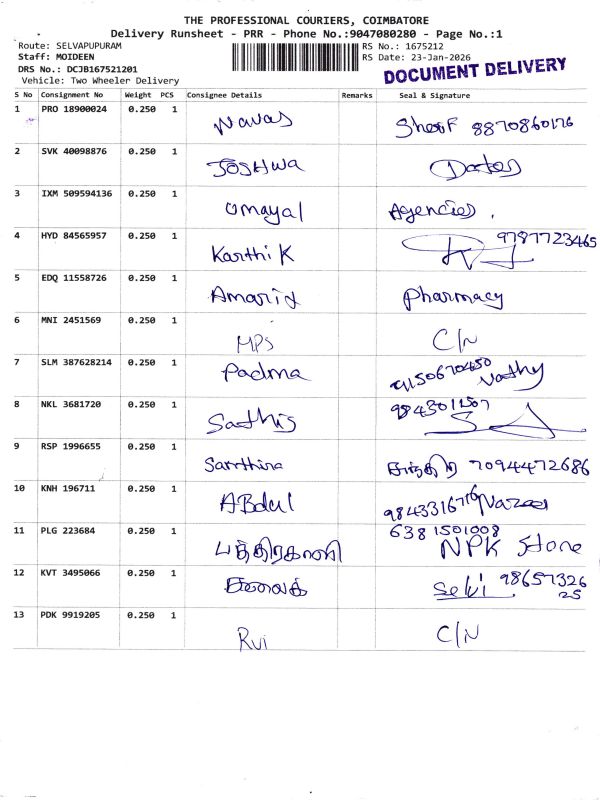 THE PROFESSIONAL COURIERS, COIMBATORE
Delivery Runsheet - PRR - Phone No.:9047080280 - Page No.:1
Route: SELVAPUPURAM
RS No.: 1675212
Staff: MOIDEEN
RS Date: 23-Jan-2026
DRS No.: DCJB167521201
DOCUMENT DELIVERY
Vehicle: Two Wheeler Delivery
S No Consignment No Weight PCS Consignee Details Remarks Seal & Signature
1 PRO 18900024 0.250 1 Navas 8870860176
2 SVK 40098876 0.250 1 JOSHWA
3 IXM 509594136 0.250 1 Omayal Agencies.
4 HYD 84565957 0.250 1 Karthi K 9787723465
5 EDQ 11558726 0.250 1 Pharmacy
6 MNI 2451569 0.250 1 MPS C/N
7 SLM 387628214 0.250 1 Padma 9150670450
8 NKL 3681720 0.250 1 Sathis 9843011507
9 RSP 1996655 0.250 1 7094472686
10 KNH 196711 0.250 1 ABdul 9843316716
11 PLG 223684 0.250 1 பத்திரகாளி 6381501008
NPK Store
12 KVT 3495066 0.250 1 Selvi 98657326
25
13 PDK 9919205 0.250 1 Rvi C/N